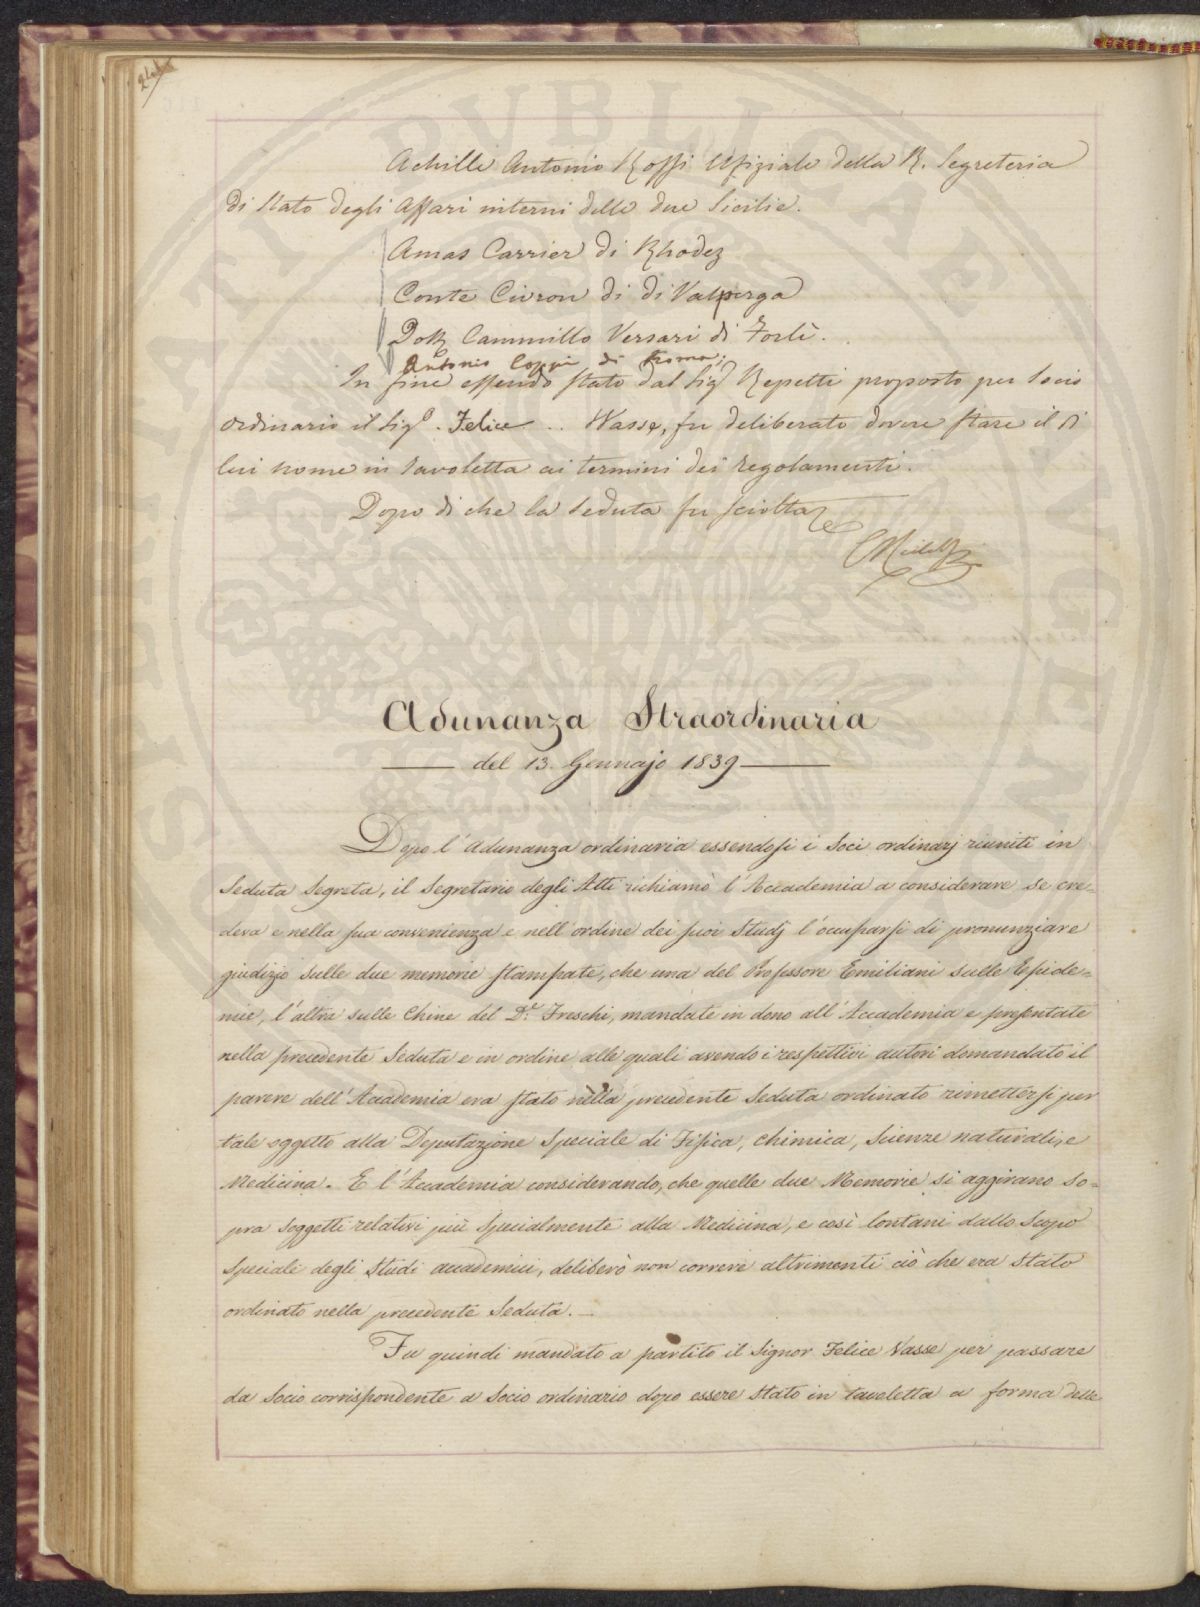 Achille Antonio Rossi Ufiziale della R. Segreteria
di Stato degli Affari interni delle due Sicilie.
Amas Carrier di Rhodez
Conte Civron di di Valperga
Dott Cammillo Versari di Forlì.
Antonio Coppi di Roma;
In fine essendo stato dal Sig.r Repetti proposto per Socio
ordinario il Sig.r Felice .. Vasse, fu deliberato dovere stare il di
lui nome in tavoletta ai termini dei regolamenti.
Dopo di che la Seduta fu sciolta
Adunanza Straordinaria
del 13. Gennajo 1839
Dopo l'Adunanza ordinaria essendosi i Soci ordinarj riuniti in
Seduta Segreta, il Segretario degli Atti richiamò l'Accademia a considerare se cre=
deva e nella sua convenienza e nell'ordine dei suoi Studj l'occuparsi di pronunziare
giudizio sulle due memorie stampate, che una del Professore Emiliani sulle Epide=
mie, l'altra sulle Chine del D.r Freschi, mandate in dono all'Accademia e presentate
nella precedente Seduta e in ordine alle quali avendo i respettivi autori domandato il
parere dell'Accademia era stato nella precedente Seduta ordinato rimettersi per
tale oggetto alla Deputazione Speciale di Fisica, Chimica, Scienze naturali, e
Medicina. E l'Accademia considerando, che quelle due Memorie si aggirano so=
pra soggetti relativi più specialmente alla Medicina, e così lontani dallo Scopo
Speciale degli Studi accademici, deliberò non correre altrimenti ciò che era stato
ordinato nella precedente Seduta.
Fu quindi mandato a partito il Signor Felice Vasse per passare
da Socio corrispondente a Socio ordinario dopo essere stato in tavoletta a forma delle